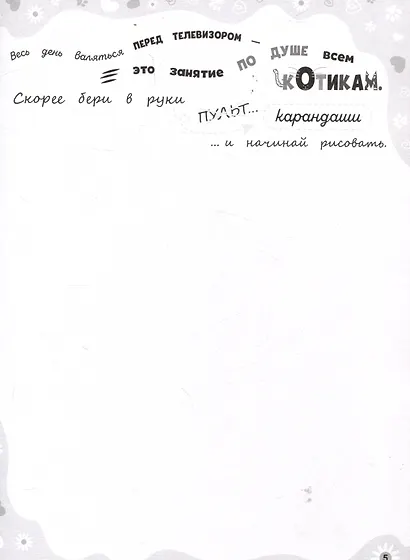 Весь день валяться ПЕРЕД ТЕЛЕВИЗОРОМ —
это занятие ПО ДУШЕ всем КОТИКАМ.
Скорее бери в руки
ПУЛЬТ... карандаши
... и начинай рисовать.
5